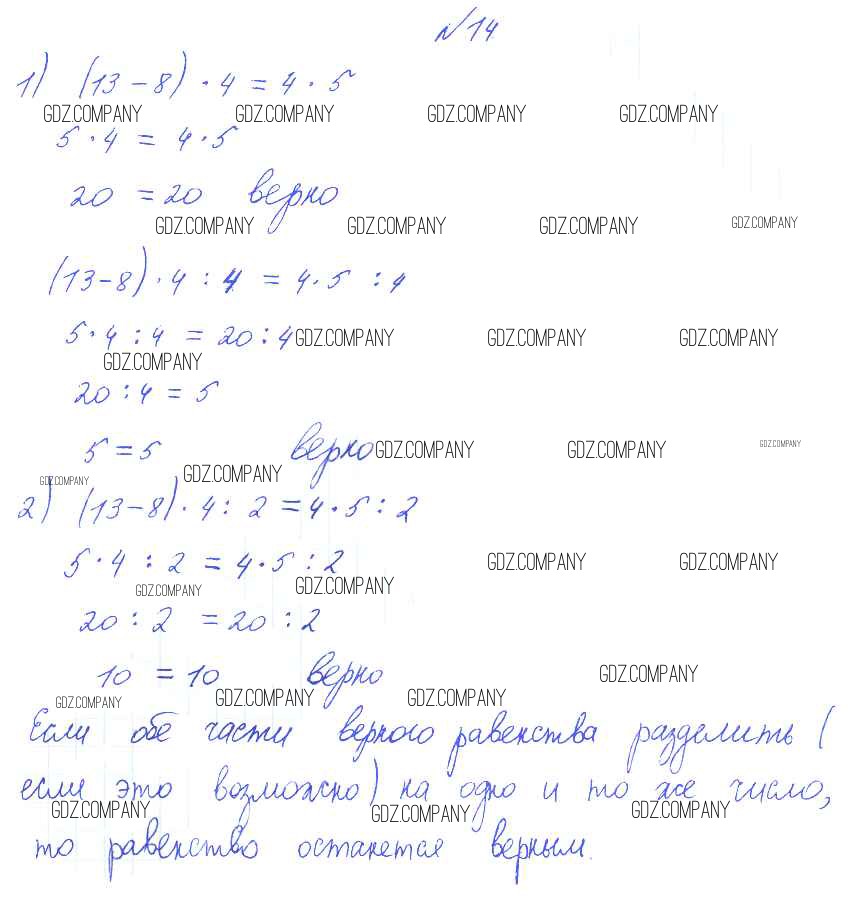 №14
1) (13-8)·4=4·5
GDZ.COMPANY GDZ.COMPANY GDZ.COMPANY GDZ.COMPANY
5·4 = 4·5
20 = 20 верно
GDZ.COMPANY GDZ.COMPANY GDZ.COMPANY GDZ.COMPANY
(13-8)·4:4 = 4·5:4
5·4:4 = 20:4 GDZ.COMPANY GDZ.COMPANY GDZ.COMPANY
GDZ.COMPANY
20:4 = 5
5=5 верно GDZ.COMPANY GDZ.COMPANY GDZ.COMPANY
GDZ.COMPANY GDZ.COMPANY
2) (13-8)·4:2=4·5:2
5·4:2 = 4·5:2 GDZ.COMPANY GDZ.COMPANY
GDZ.COMPANY GDZ.COMPANY
20:2 = 20:2
10 = 10 верно GDZ.COMPANY
GDZ.COMPANY GDZ.COMPANY GDZ.COMPANY
Если обе части верного равенства разделить (
если это возможно) на одно и то же число,
GDZ.COMPANY GDZ.COMPANY GDZ.COMPANY
то равенство останется верным.